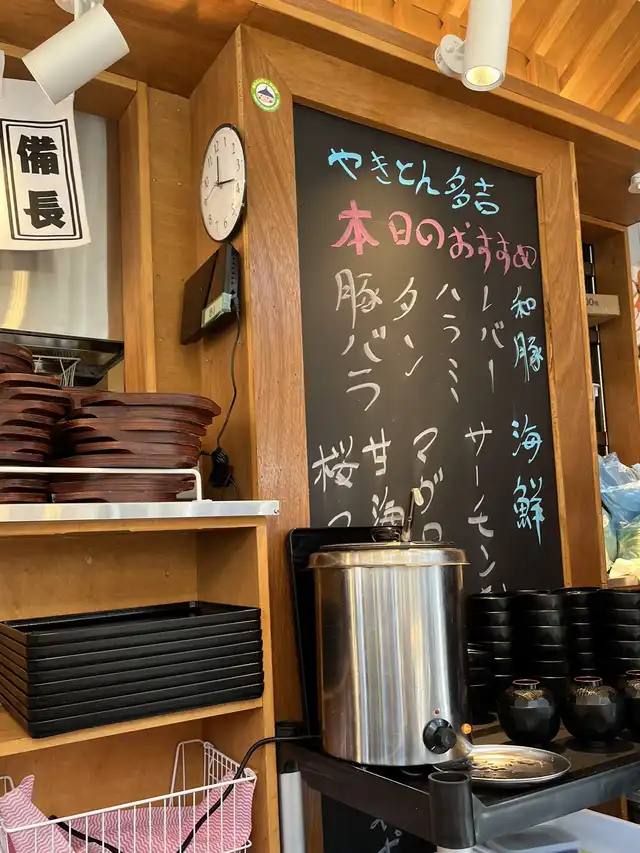 備長
やきとん多吉
本日のおすすめ
和豚
レバー
ハラミ
タン
豚バラ
海鮮
サーモン
マグロ
甘海
桜